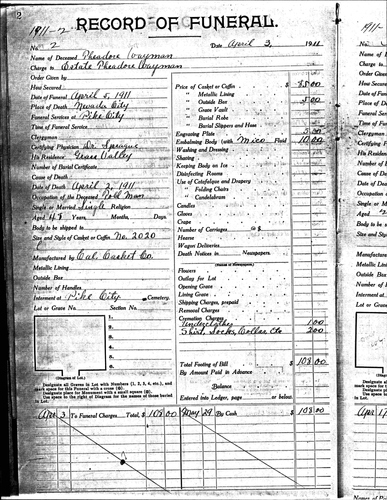 2
RECORD OF FUNERAL.
1911-2
No. 2
Date April 3, 1911
Name of Deceased Theadore Wayman
Charge to Estate Theadore Wayman
Order Given by
How Secured
Date of Funeral April 5, 1911
Place of Death Nevada City
Funeral Services at Pike City
Time of Funeral Service
Clergyman
Certifying Physician Dr. Sprague
His Residence Grass Valley
Number of Burial Certificate
Cause of Death
Date of Death April 2, 1911
Occupation of the Deceased
Single or Married Single Religion
Aged 48 Years, Months, Days
Body to be shipped to
Size and Style of Casket or Coffin, No. 2020
Manufactured by Cal. Casket Co.
Metallic Lining
Outside Box
Number of Handles
Interment at Pike City Cemetery.
Lot or Grave No. Section No.
1.
2.
3.
4.
5.
6.
(Diagram of Lot.)
Designate all Graves in Lot with Numbers (1, 2, 3, 4, etc.), and mark space for this Funeral with a cross (X).
Designate place for Monument with a small square (□).
Use space to the right of Diagram for the names of those buried in Lot.
Price of Casket or Coffin $ 85.00
" Metallic Lining
" Outside Box 5.00
" Grave Vault
" Burial Robe
" Burial Slippers and Hose
Engraving Plate
Embalming Body (with Mico Fluid 10.00
Washing and Dressing
Shaving
Keeping Body on Ice
Disinfecting Rooms
Use of Catafalque and Drapery
" Folding Chairs
" Candelabrum
Candles
Gloves
Crape
Number of Carriages @ $
Hearse
Wagon Deliveries
Death Notices in Newspapers.
(Names of Newspapers)
Flowers
Outlay for Lot
Opening Grave
Lining Grave
Shipping Charges, prepaid
Removal Charges
Cremating Charges
Underclothes 1.00
Shirt, Socks, Collar Etc 2.00
Total Footing of Bill $ 108.00
By Amount Paid in Advance
Balance
Entered into Ledger, page or below.
Apr 3 To Funeral Charges Total, $ 108.00 May 29 By Cash $ 108.00